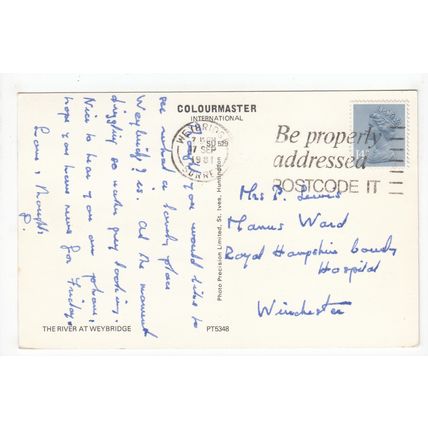 COLOURMASTER
INTERNATIONAL
WEYBRIDGE
7 SEP
1981
SURREY
Be properly
addressed
POSTCODE IT
I thought you would like to
see what a lovely place
Weybridge is. At the moment
drizzling so rather grey looking.
Nice to hear you on phone,
hope you have news for Friday
Love, thoughts
P.
Mrs P. Lewis
Manus Ward
Royal Hampshire County
Hospital
Winchester
Photo Precision Limited, St. Ives, Huntingdon
THE RIVER AT WEYBRIDGE
PT5348